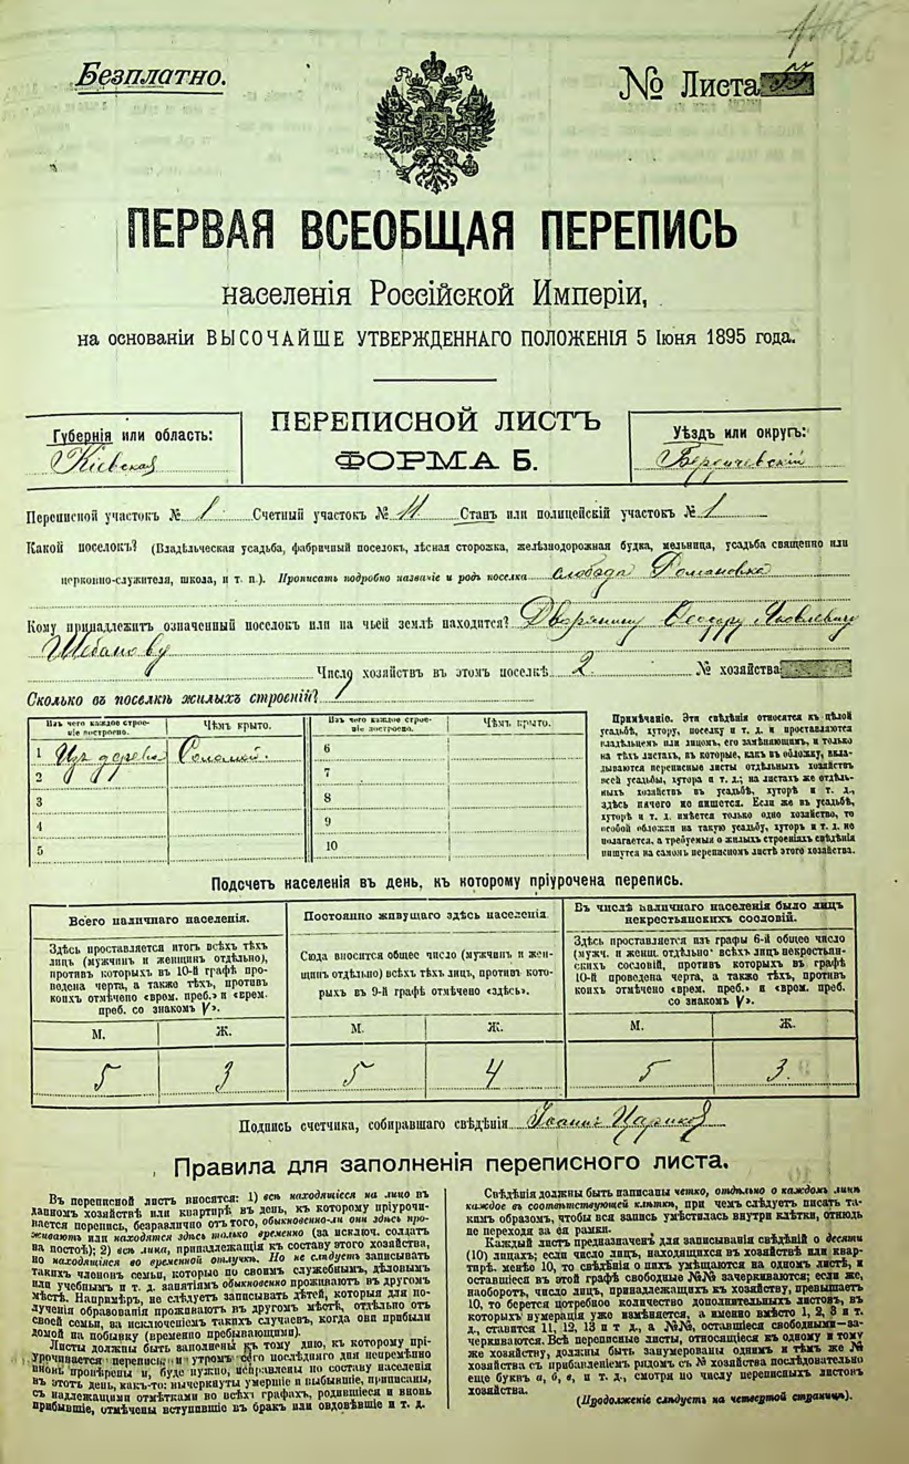 Безплатно.
№ Листа 55
ПЕРВАЯ ВСЕОБЩАЯ ПЕРЕПИСЬ
населенія Россійской Имперіи,
на основаніи ВЫСОЧАЙШЕ УТВЕРЖДЕННАГО ПОЛОЖЕНІЯ 5 Іюня 1895 года.
Губернія или область:
Кіевская
ПЕРЕПИСНОЙ ЛИСТЪ
ФОРМА Б.
Уѣздъ или округъ:
Бердичевскій
Переписной участокъ № 1 Счетный участокъ № 11 Станъ или полицейскій участокъ № 1
Какой поселокъ? (Владѣльческая усадьба, фабричный поселокъ, лѣсная сторожка, желѣзнодорожная будка, мельница, усадьба священно или
церковно-служителя, школа, и т. п.). Прописать подробно названіе и родъ поселка слобода Романовка
Кому принадлежитъ означенный поселокъ или на чьей землѣ находится? Дворянину Ѳеодору Яковлевичу
Шебанову
Число хозяйствъ въ этомъ поселкѣ 2. № хозяйства
Сколько въ поселкѣ жилыхъ строеній? 1
Изъ чего каждое строе-
ніе построено.
Чѣмъ крыто.
Изъ чего каждое строе-
ніе построено.
Чѣмъ крыто.
1 Изъ дерева Соломой. 6
2 7
3 8
4 9
5 10
Примѣчаніе. Эти свѣдѣнія относятся къ цѣлой
усадьбѣ, хутору, поселку и т. д. и проставляются
владѣльцемъ или лицомъ, его замѣняющимъ, и только
на тѣхъ листахъ, въ которые, какъ въ обложку, вкла-
дываются переписные листы отдѣльныхъ хозяйствъ
всей усадьбы, хутора и т. д.; на листахъ же отдѣль-
ныхъ хозяйствъ въ усадьбѣ, хуторѣ и т. д.,
здѣсь ничего не пишется. Если же въ усадьбѣ,
хуторѣ и т. д. имѣется только одно хозяйство, то
особой обложки на такую усадьбу, хуторъ и т. д. не
полагается, а требуемыя о жилыхъ строеніяхъ свѣдѣнія
пишутся на самомъ переписномъ листѣ этого хозяйства.
Подсчетъ населенія въ день, къ которому пріурочена перепись.
Всего наличнаго населенія.
Здѣсь проставляется итогъ всѣхъ тѣхъ
лицъ (мужчинъ и женщинъ отдѣльно),
противъ которыхъ въ 10-й графѣ про-
ведена черта, а также тѣхъ, противъ
коихъ отмѣчено «врем. преб.» и «врем.
преб. со знакомъ V».
Постоянно живущаго здѣсь населенія
Сюда вносится общее число (мужчинъ и жен-
щинъ отдѣльно) всѣхъ тѣхъ лицъ, противъ кото-
рыхъ въ 9-й графѣ отмѣчено «здѣсь».
Въ числѣ наличнаго населенія было лицъ
некрестьянскихъ сословій.
Здѣсь проставляется изъ графы 6-й общее число
(мужч. и женщ. отдѣльно) всѣхъ лицъ некрестьян-
скихъ сословій, противъ которыхъ въ графѣ
10-й проведена черта, а также тѣхъ, противъ
коихъ отмѣчено «врем. преб.» и «врем. преб.
со знакомъ V».
М. Ж. М. Ж. М. Ж.
5 3 5 4 5 3.
Подпись счетчика, собиравшаго свѣдѣнія Іоаннъ
Правила для заполненія переписного листа.
Въ переписной листъ вносятся: 1) всѣ находящіеся на лицо въ
данномъ хозяйствѣ или квартирѣ въ день, къ которому пріурочи-
вается перепись, безразлично отъ того, обыкновенно-ли они здѣсь про-
живаютъ или находятся здѣсь только временно (за исключ. солдатъ
на постоѣ); 2) всѣ лица, принадлежащія къ составу этого хозяйства,
но находящіяся во временной отлучкѣ. Но не слѣдуетъ записывать
такихъ членовъ семьи, которые по своимъ служебнымъ, дѣловымъ
или учебнымъ и т. д. занятіямъ обыкновенно проживаютъ въ другомъ
мѣстѣ. Напримѣръ, не слѣдуетъ записывать дѣтей, которыя для по-
лученія образованія проживаютъ въ другомъ мѣстѣ, отдѣльно отъ
своей семьи, за исключеніемъ такихъ случаевъ, когда они прибыли
домой на побывку (временно пребывающими).
Листы должны быть заполнены къ тому дню, къ которому прі-
урочивается перепись, и утромъ сего послѣдняго дня непремѣнно
вновь провѣрены и, буде нужно, исправлены по составу населенія
въ этотъ день, какъ-то: вычеркнуты умершіе и выбывшіе, приписаны,
съ надлежащими отмѣтками во всѣхъ графахъ, родившіеся и вновь
прибывшіе, отмѣчены вступившіе въ бракъ или овдовѣвшіе и т. д.
Свѣдѣнія должны быть написаны четко, отдѣльно о каждомъ лицѣ
каждое въ соотвѣтствующей клѣткѣ, при чемъ слѣдуетъ писать та-
кимъ образомъ, чтобы вся запись умѣстилась внутри клѣтки, отнюдь
не переходя за ея рамки.
Каждый листъ предназначенъ для записыванія свѣдѣній о десяти
(10) лицахъ; если число лицъ, находящихся въ хозяйствѣ или квар-
тирѣ, менѣе 10, то свѣдѣнія о нихъ умѣщаются на одномъ листѣ, и
оставшіеся въ этой графѣ свободные №№ зачеркиваются; если же,
наоборотъ, число лицъ, принадлежащихъ къ хозяйству, превышаетъ
10, то берется потребное количество дополнительныхъ листовъ, въ
которыхъ нумерація уже измѣняется, а именно вмѣсто 1, 2, 3 и т.
д., ставится 11, 12, 13 и т д., а №№, оставшіеся свободными—за-
черкиваются. Всѣ переписные листы, относящіеся къ одному и тому
же хозяйству, должны быть занумерованы однимъ и тѣмъ же №
хозяйства съ прибавленіемъ рядомъ съ № хозяйства послѣдовательно
еще буквъ а, б, в, и т. д., смотря по числу переписныхъ листовъ
хозяйства.
(Продолженіе слѣдуетъ на четвертой страницѣ).